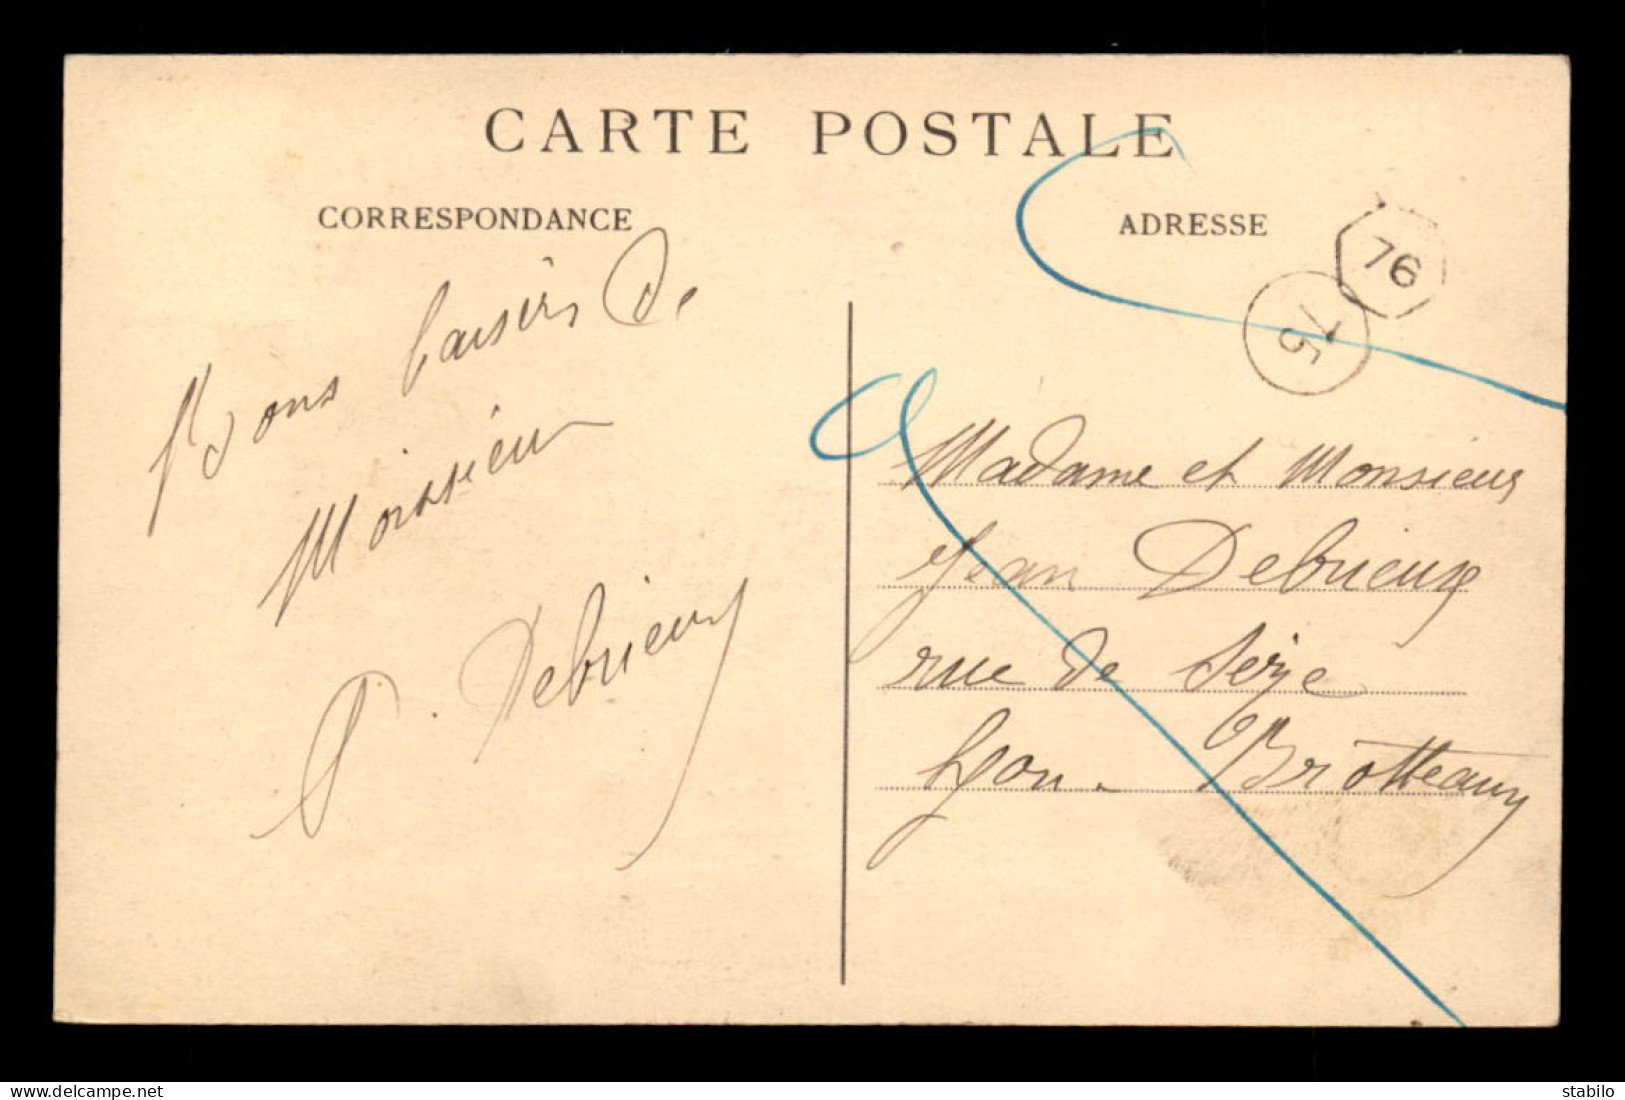 CARTE POSTALE
CORRESPONDANCE
ADRESSE
76
75
Bons baisers de
P. Debrieux
Madame et Monsieur
Jean Debrieux
rue de Sèze
Lyon - Brotteaux
www.delcampe.net
stabilo